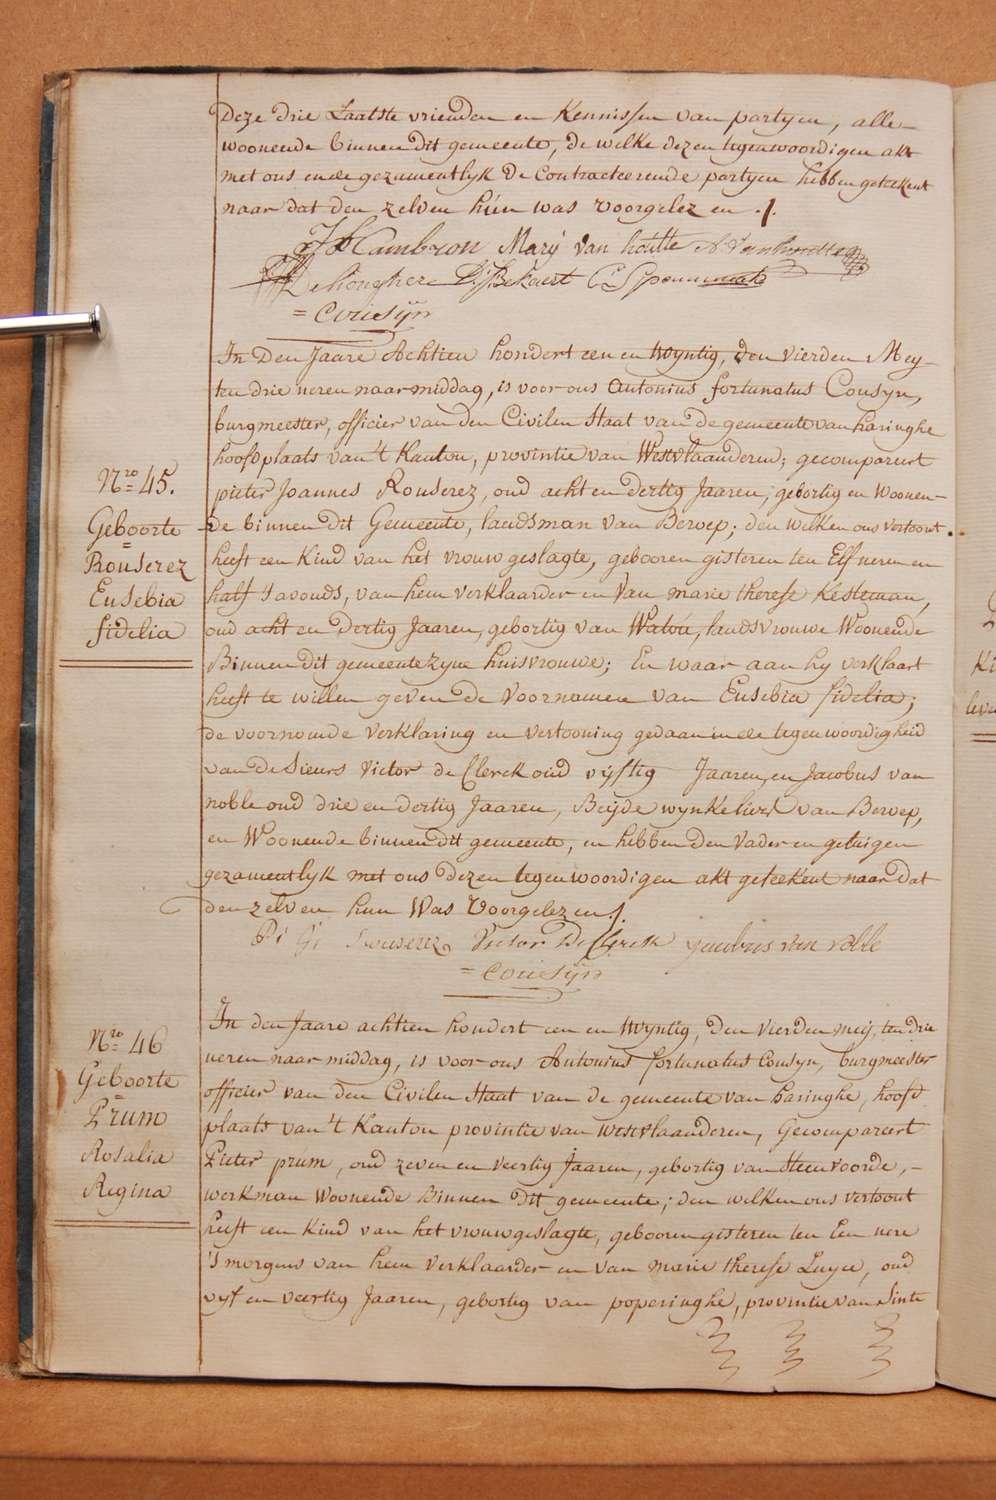 Deze drie Laatste vrienden en Kennissen van partyen, alle
woonende binnen dit gemeente, de welke dezen tegenwoordigen akt
met ons ende gezamentlyk de Contracteerende partyen hebben geteekent
naar dat den zelven hún was voorgelezen ./.
Cambron Marÿ Van houtte
Bekaert
= Cousÿn
In Den Jaare Achtien hondert een en twyntig, den vierden Mey
ten drie ueren naarmiddag, is voor ons Antonius fortunatus Cousyn,
burgmeester, officier van den Civilen Staat van de gemeente van haringhe
hoofdplaats van 't Kanton, provintie van Westvlaanderen; gecompareert
Nro 45.
pieter Joannes Rouserez, oud acht en dertig Jaaren, gebortig en Woonen-
Geboorte
de binnen dit Gemeente, landsman van Beroep; den welken ons vertoont
Rouserez
heeft een Kind van het vrouwgeslagte, gebooren gisteren ten Elf ueren en
Eusebia
half 's avonds, van hem verklaarder en Van marie therese Kesteman,
fidelia
oud acht en dertig Jaaren, gebortig van Watoú, landsvrouwe Woonende
Binnen dit gemeente zyne huisvrouwe; En waar aan hy verklaart
heeft te willen geven de voornamen van Eusebia fidelia;
de voornoemde verklaring en vertooning gedaan in de tegenwoordigheid
van de Sieurs Victor de Clerck oúd vyftig Jaaren, en Jacobus van
noble oud drie en dertig Jaaren, Beyde wynkeliers van Beroep,
en Woonende binnen dit gemeente, en hebben den Vader en getuigen
gezamentlyk met ons dezen tegenwoordigen akt geteekent naar dat
den zelven hun Was Voorgelezen ./.
Pi Rouserez Victor De Clerck jacobus van
= Cousÿn
In den Jaare achtien hondert een en twyntig, den vierden meÿ, ten drie
Nro 46
ueren naarmiddag, is voor ons Antonius fortunatus Cousyn, burgmeester
Geboorte
officier van den Civilen Staat van de gemeente van haringhe, hoofd
Prum
plaats van 't Kanton provintie van westvlaanderen, Gecompareert
Rosalia
Pieter prum, oud zeven en veertig Jaaren, gebortig van Steenvoorde,
Regina
werkman Woonende Binnen dit gemeente; den welken ons vertoont
heeft een Kind van het vrouwgeslagte, gebooren gisteren ten Een uere
's morgens van hem verklaarder en van marie therese oud
vyf en veertig Jaaren, gebortig van poperinghe, provintie van